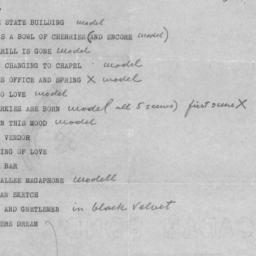 E STATE BUILDING model
S A BOWL OF CHERRIES (AND ENCORE model)
RILL IS GONE model
CHANGING TO CHAPEL model
S OFFICE AND SPRING X model
O LOVE model
RKIES ARE BORN model (all 5 scenes) first scene X
N THIS MOOD model
VENDOR
ING OF LOVE
BAR
ALLEE MAGAPHONE modell
AN SKETCH
AND GENTLEMEN in black velvet
ERS DREAM